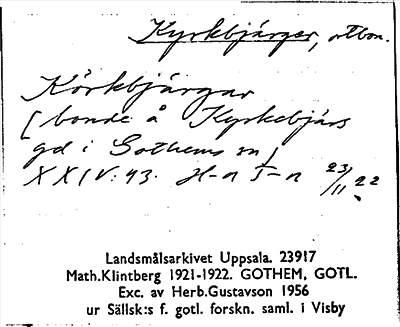 Kyrkbjärger, ortbon.
Körkbjärgar
[bonde å Kyrkebjärs
gd i Gothems sn]
XXIV: 43. H-n J-n 23/11 22
Landsmålsarkivet Uppsala. 23917
Math.Klintberg 1921-1922. GOTHEM, GOTL.
Exc. av Herb.Gustavson 1956
ur Sällsk:s f. gotl. forskn. saml. i Visby